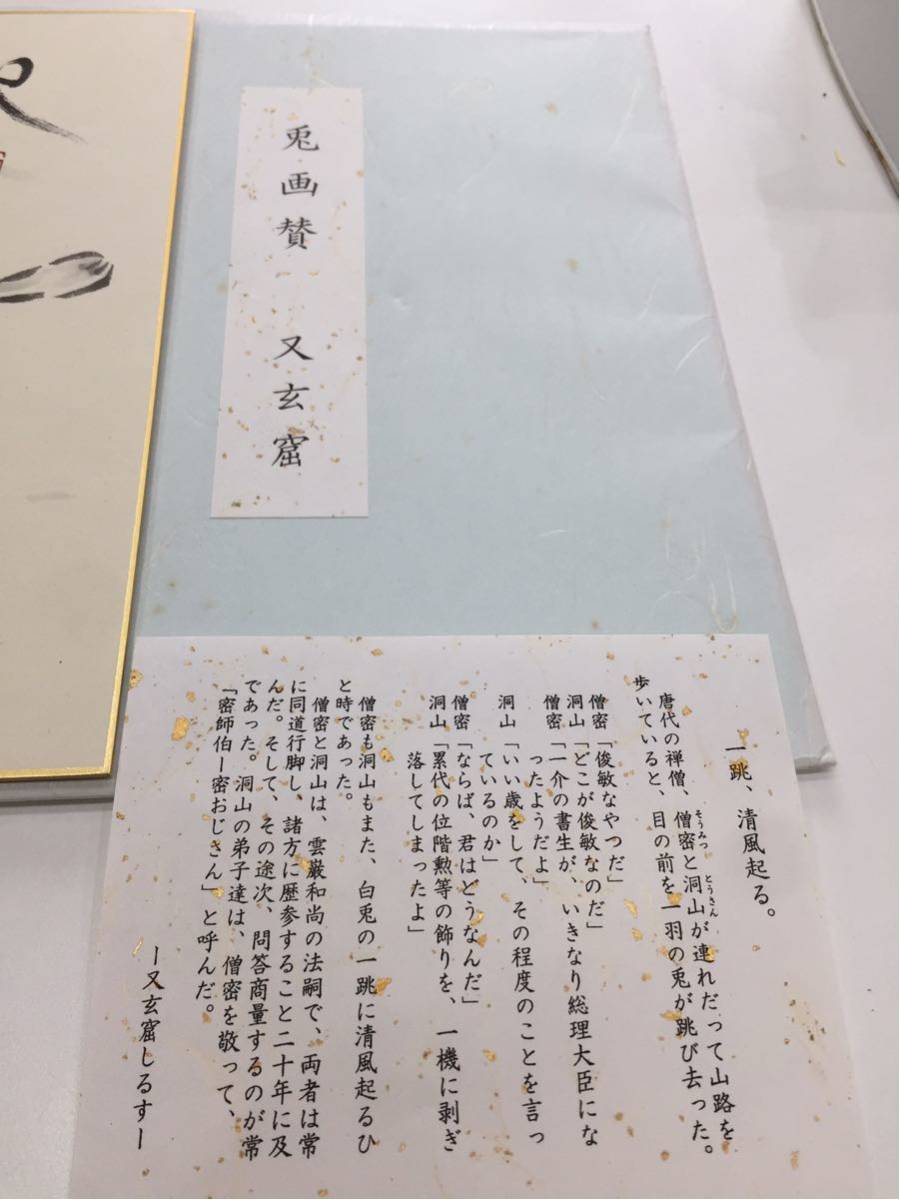 兎画賛　又玄窟
一跳、清風起る。
唐代の禅僧、僧密と洞山が連れだって山路を
歩いていると、目の前を一羽の兎が跳び去った。
僧密「俊敏なやつだ」
洞山「どこが俊敏なのだ」
僧密「一介の書生が、いきなり総理大臣にな
ったようだよ」
洞山「いい歳をして、その程度のことを言っ
ているのか」
僧密「ならば、君はどうなんだ」
洞山「累代の位階勲等の飾りを、一機に剥ぎ
落してしまったよ」
僧密も洞山もまた、白兎の一跳に清風起るひ
と時であった。
僧密と洞山は、雲巌和尚の法嗣で、両者は常
に同道行脚し、諸方に歴参すること二十年に及
んだ。そして、その途次、問答商量するのが常
であった。洞山の弟子達は、僧密を敬って、
「密師伯ー密おじさん」と呼んだ。
ー又玄窟しるすー